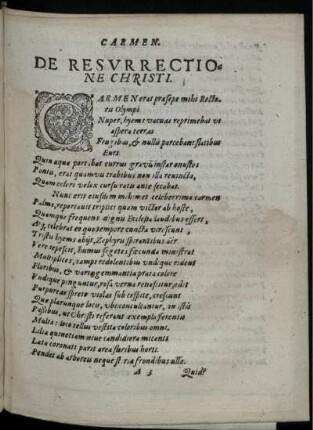 CARMEN.
DE RESVRRECTIO-
NE CHRISTI.
CARMEN erat præsepe mihi Recto-
ris Olympi
Nuper, hyems vacuas reprimebat vt
aspera terras
Frugibus, & nullis parcebant flatibus
Euri.
Quin aqua portabat currus gravis instar
Pontis, erat quamvis trabibus non illa reuincta,
Quam celeri velox cursu ratis ante secabat.
Nunc erit eiusdem mihi met celeberrima carmen
Palma, reportauit triplici quam victor ab hoste,
Quamque frequens dignis Ecclesia laudibus effert,
Atq; celebrat eo quo tempore cuncta virescunt.
Tristis hyems abijt, Zephyris spirantibus aër
Vere tepescit, humus segetes fæcunda ministrat
Multiplices, campi redolentibus vndique rident
Floribus, & varia gemmantia prata colore
Vndique pinguntur, rosa verna renascitur, edit
Purpureas spreto violas sub cespite, crescunt
Quæ plerumque loco, vbi conculcantur, in istis
Passibus, vt Christi referant exempla ferentis
Multa: loco tellus vestita coloribus omni.
Lilia quinetiam niue candidiora micanti
Læta coronati parit area floribus horti.
Pendet ab arboreis neque stiria frondibus vlla.
A 3 Quid?